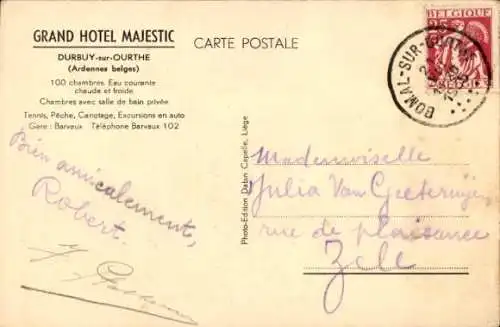 GRAND HOTEL MAJESTIC
DURBUY-sur-OURTHE
(Ardennes belges)
100 chambres. Eau courante
chaude et froide
Chambres avec salle de bain privée
Tennis, Pêche, Canotage, Excursions en auto
Gare : Barvaux Téléphone Barvaux 102
Bien amicalement,
Robert.
CARTE POSTALE
Photo-Edition Dabin Capelle, Liège
BELGIQUE
BOMAL-SUR-OURTHE
Mademoiselle
Julia Van
rue de plaisance
Zele